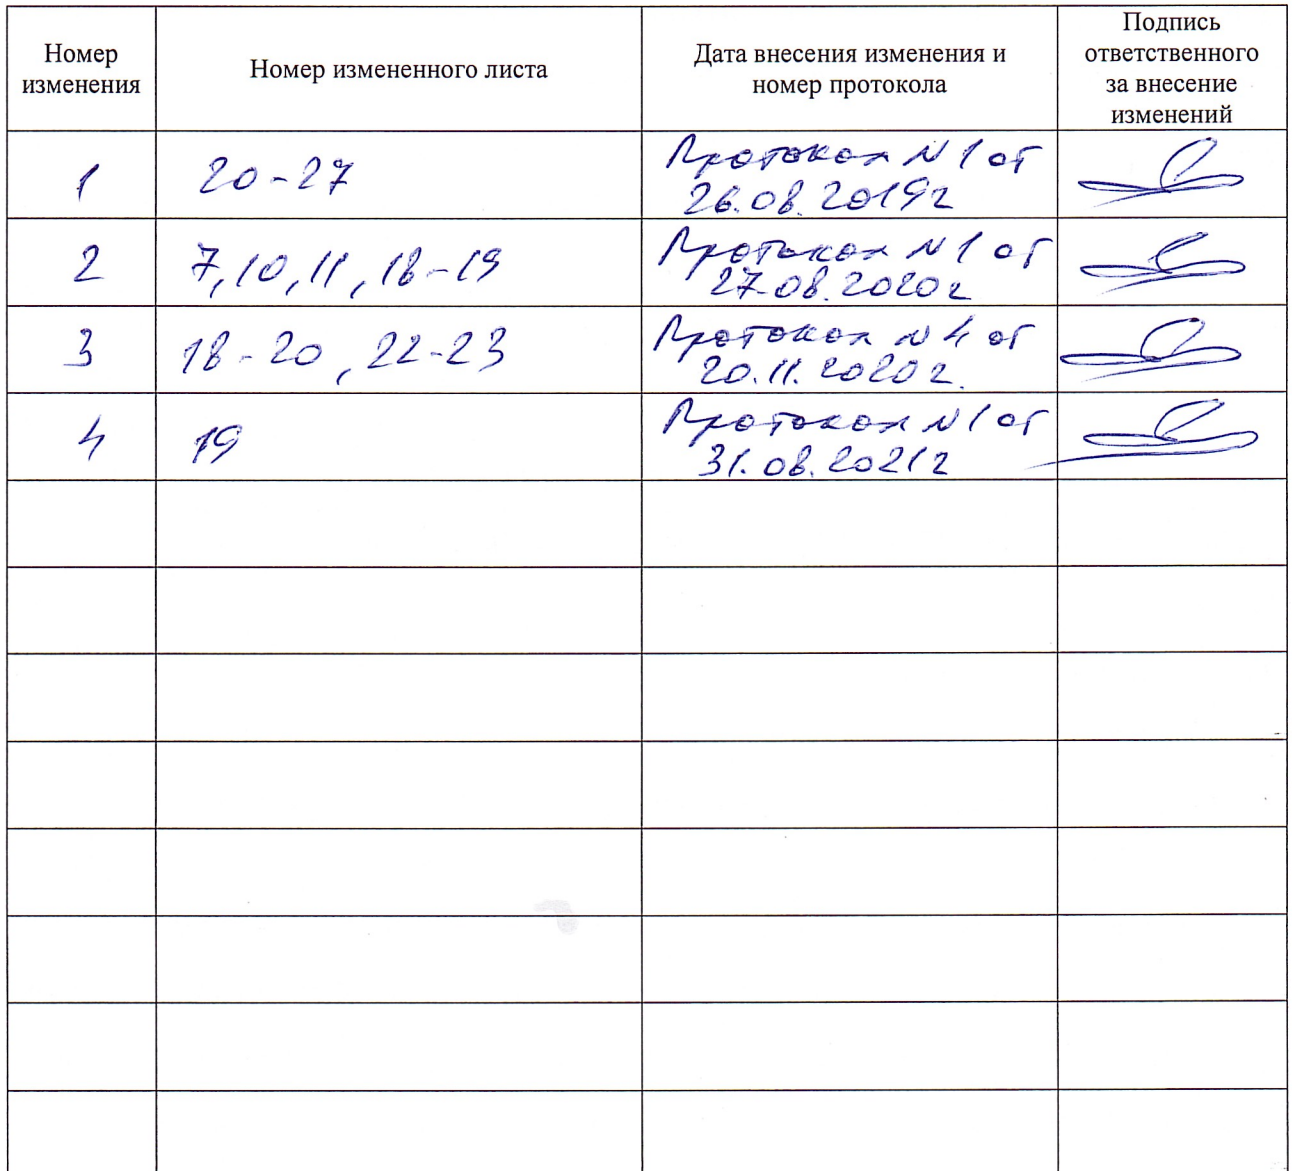 Номер
изменения
Номер измененного листа
Дата внесения изменения и
номер протокола
Подпись
ответственного
за внесение
изменений
1
20-27
Протокол N 1 от
26.08.2019г
2
7,10,11,18-19
Протокол N 1 от
27.08.2020г
3
18-20,22-23
Протокол N 4 от
20.11.2020г.
4
19
Протокол N 1 от
31.08.2021г